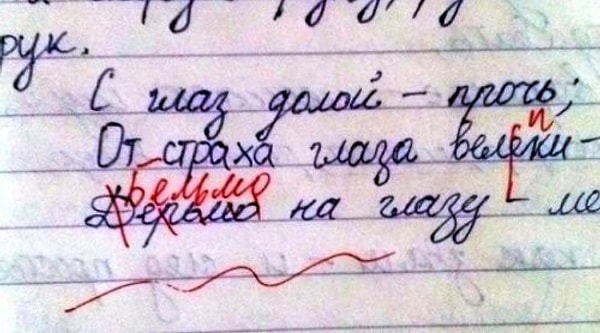 рук.
С глаз долой – прочь;
и
От страха глаза велеки –
Бельмо
Дерьмо на глазу – ме